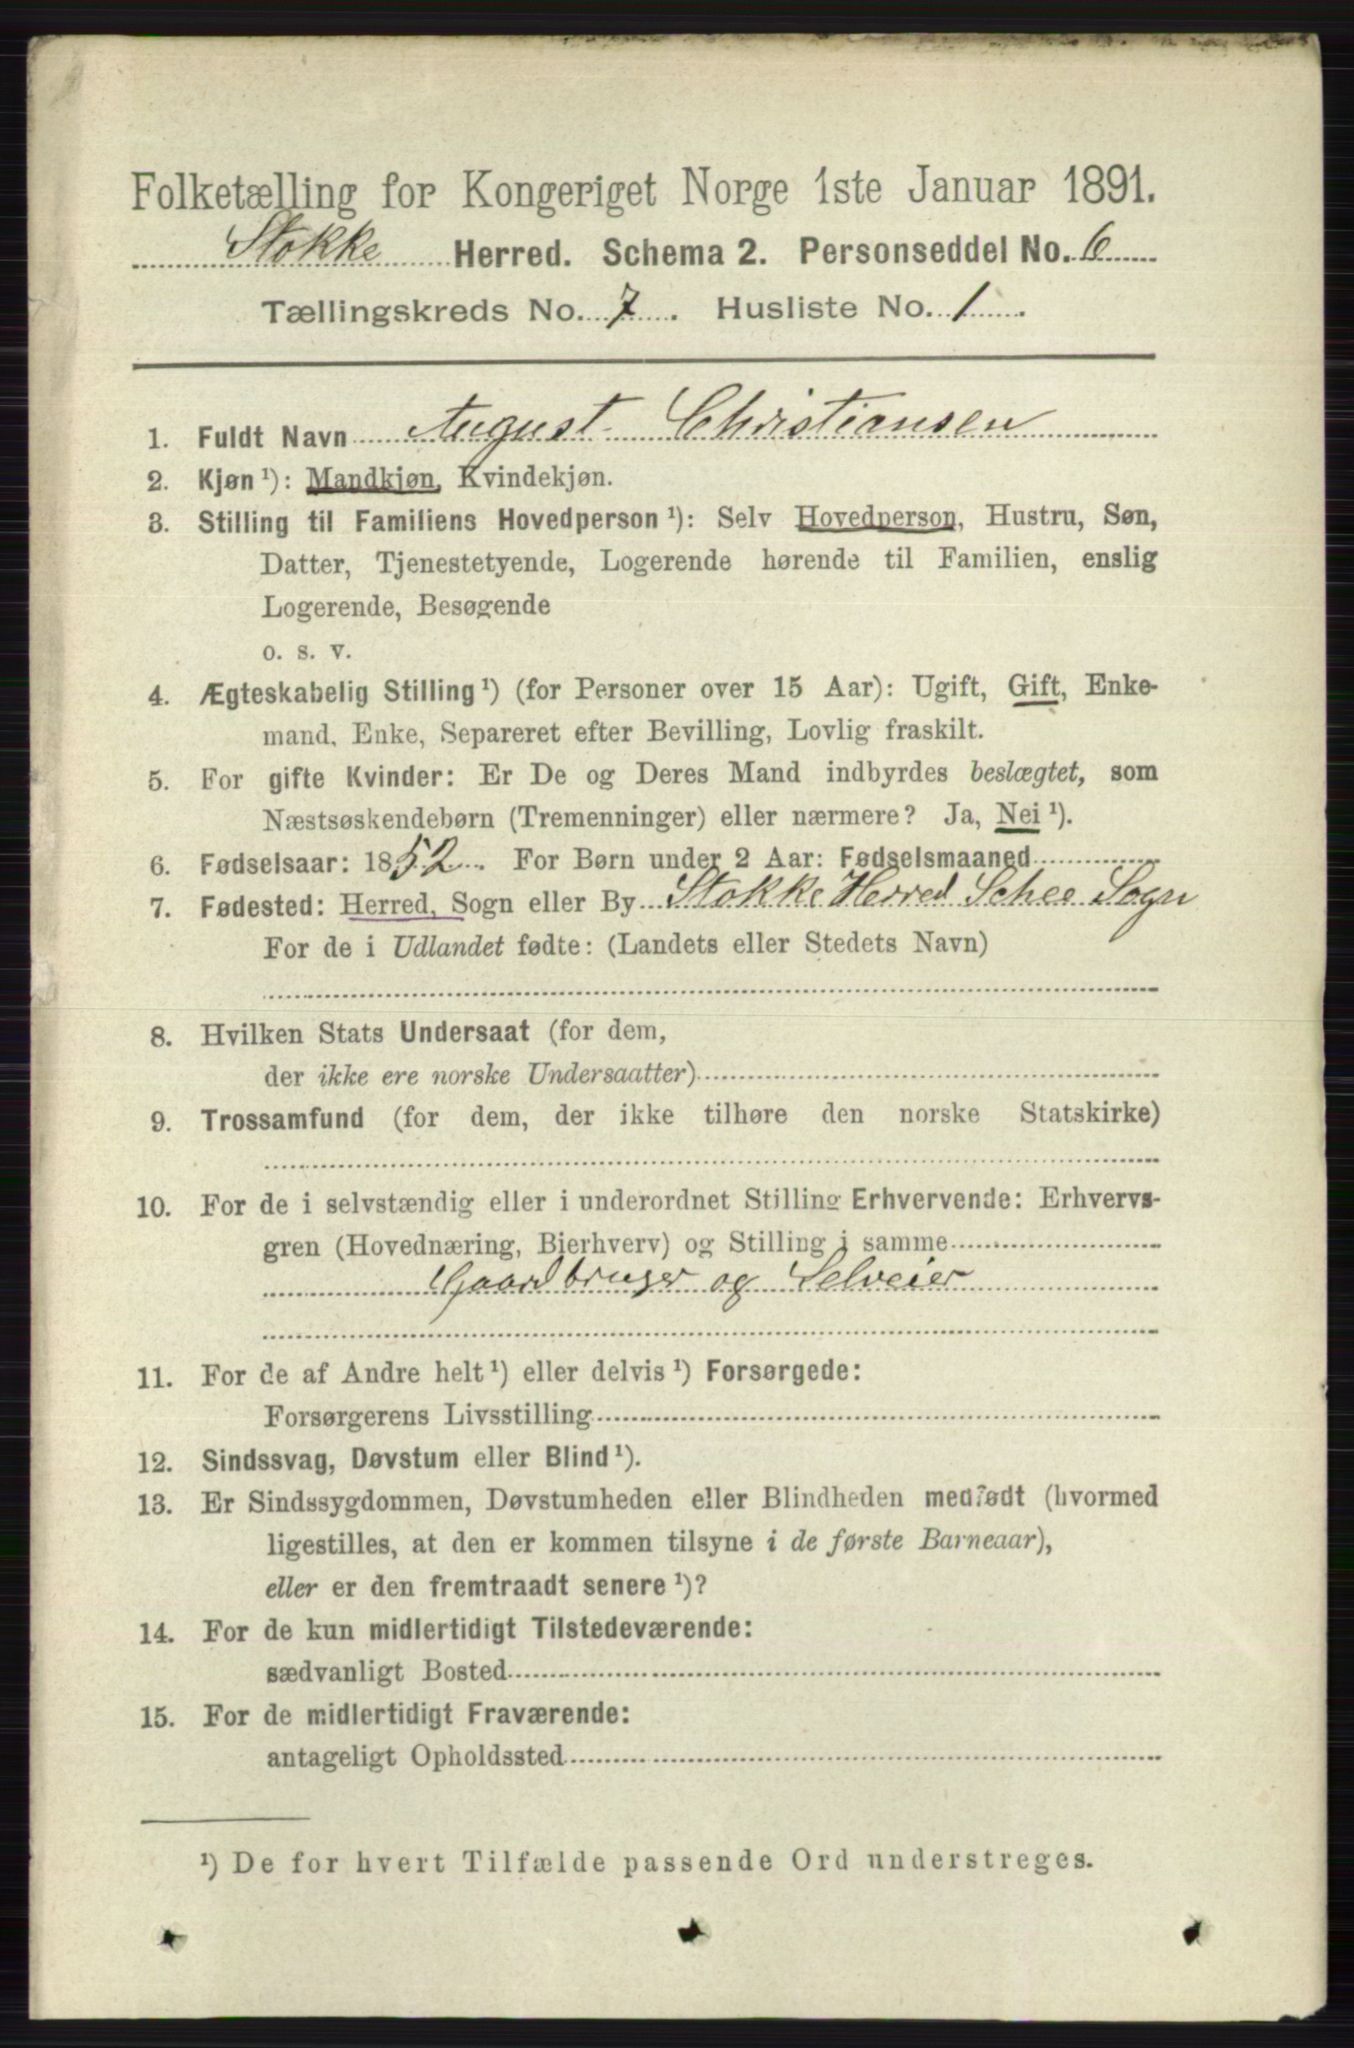 Folketælling for Kongeriget Norge 1ste Januar 1891.
Stokke Herred. Schema 2. Personseddel No. 6
Tællingskreds No. 7. Husliste No. 1.
1. Fuldt Navn August Christiansen
2. Kjøn¹): Mandkjøn, Kvindekjøn.
3. Stilling til Familiens Hovedperson¹): Selv Hovedperson, Hustru, Søn,
Datter, Tjenestetyende, Logerende hørende til Familien, enslig
Logerende, Besøgende
o. s. v.
4. Ægteskabelig Stilling¹) (for Personer over 15 Aar): Ugift, Gift, Enke-
mand, Enke, Separeret efter Bevilling, Lovlig fraskilt.
5. For gifte Kvinder: Er De og Deres Mand indbyrdes beslægtet, som
Næstsøskendebørn (Tremenninger) eller nærmere? Ja, Nei¹).
6. Fødselsaar: 1852. For Børn under 2 Aar: Fødselsmaaned
7. Fødested: Herred, Sogn eller By Stokke Herred Schee Sogn
For de i Udlandet fødte: (Landets eller Stedets Navn)
8. Hvilken Stats Undersaat (for dem,
der ikke ere norske Undersaatter)
9. Trossamfund (for dem, der ikke tilhøre den norske Statskirke)
10. For de i selvstændig eller i underordnet Stilling Erhvervende: Erhvervs-
gren (Hovednæring, Bierhverv) og Stilling i samme
Gaardbruger og Selveier
11. For de af Andre helt¹) eller delvis¹) Forsørgede:
Forsørgerens Livsstilling
12. Sindssvag, Døvstum eller Blind¹).
13. Er Sindssygdommen, Døvstumheden eller Blindheden medfødt (hvormed
ligestilles, at den er kommen tilsyne i de første Barneaar),
eller er den fremtraadt senere¹)?
14. For de kun midlertidigt Tilstedeværende:
sædvanligt Bosted
15. For de midlertidigt Fraværende:
antageligt Opholdssted
¹) De for hvert Tilfælde passende Ord understreges.